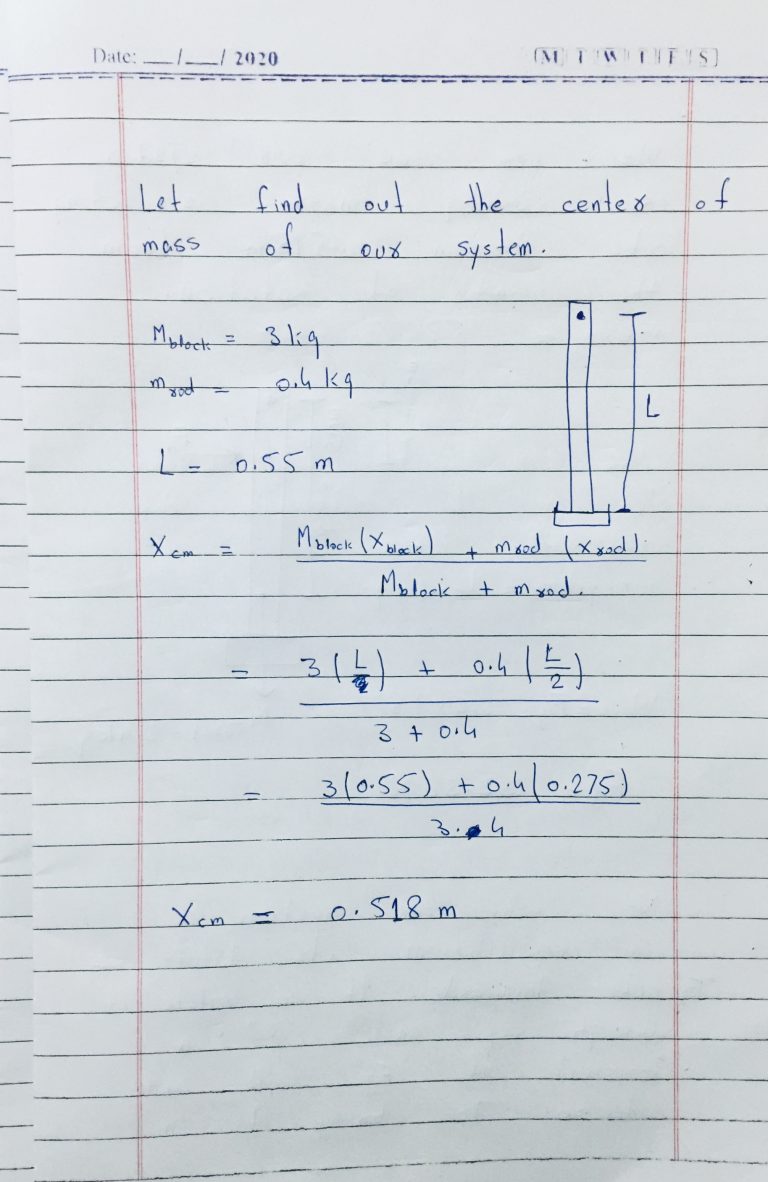 Date: __/__/ 2020 [M T W T F S]
Let find out the center of
mass of our system.
M block = 3 kg
m rod = 0.4 kg
L
L = 0.55 m
X cm = M block (X block) + m rod (x rod)
M block + m rod.
= 3 (L) + 0.4 (L/2)
3 + 0.4
= 3(0.55) + 0.4(0.275)
3.4
X cm = 0.518 m